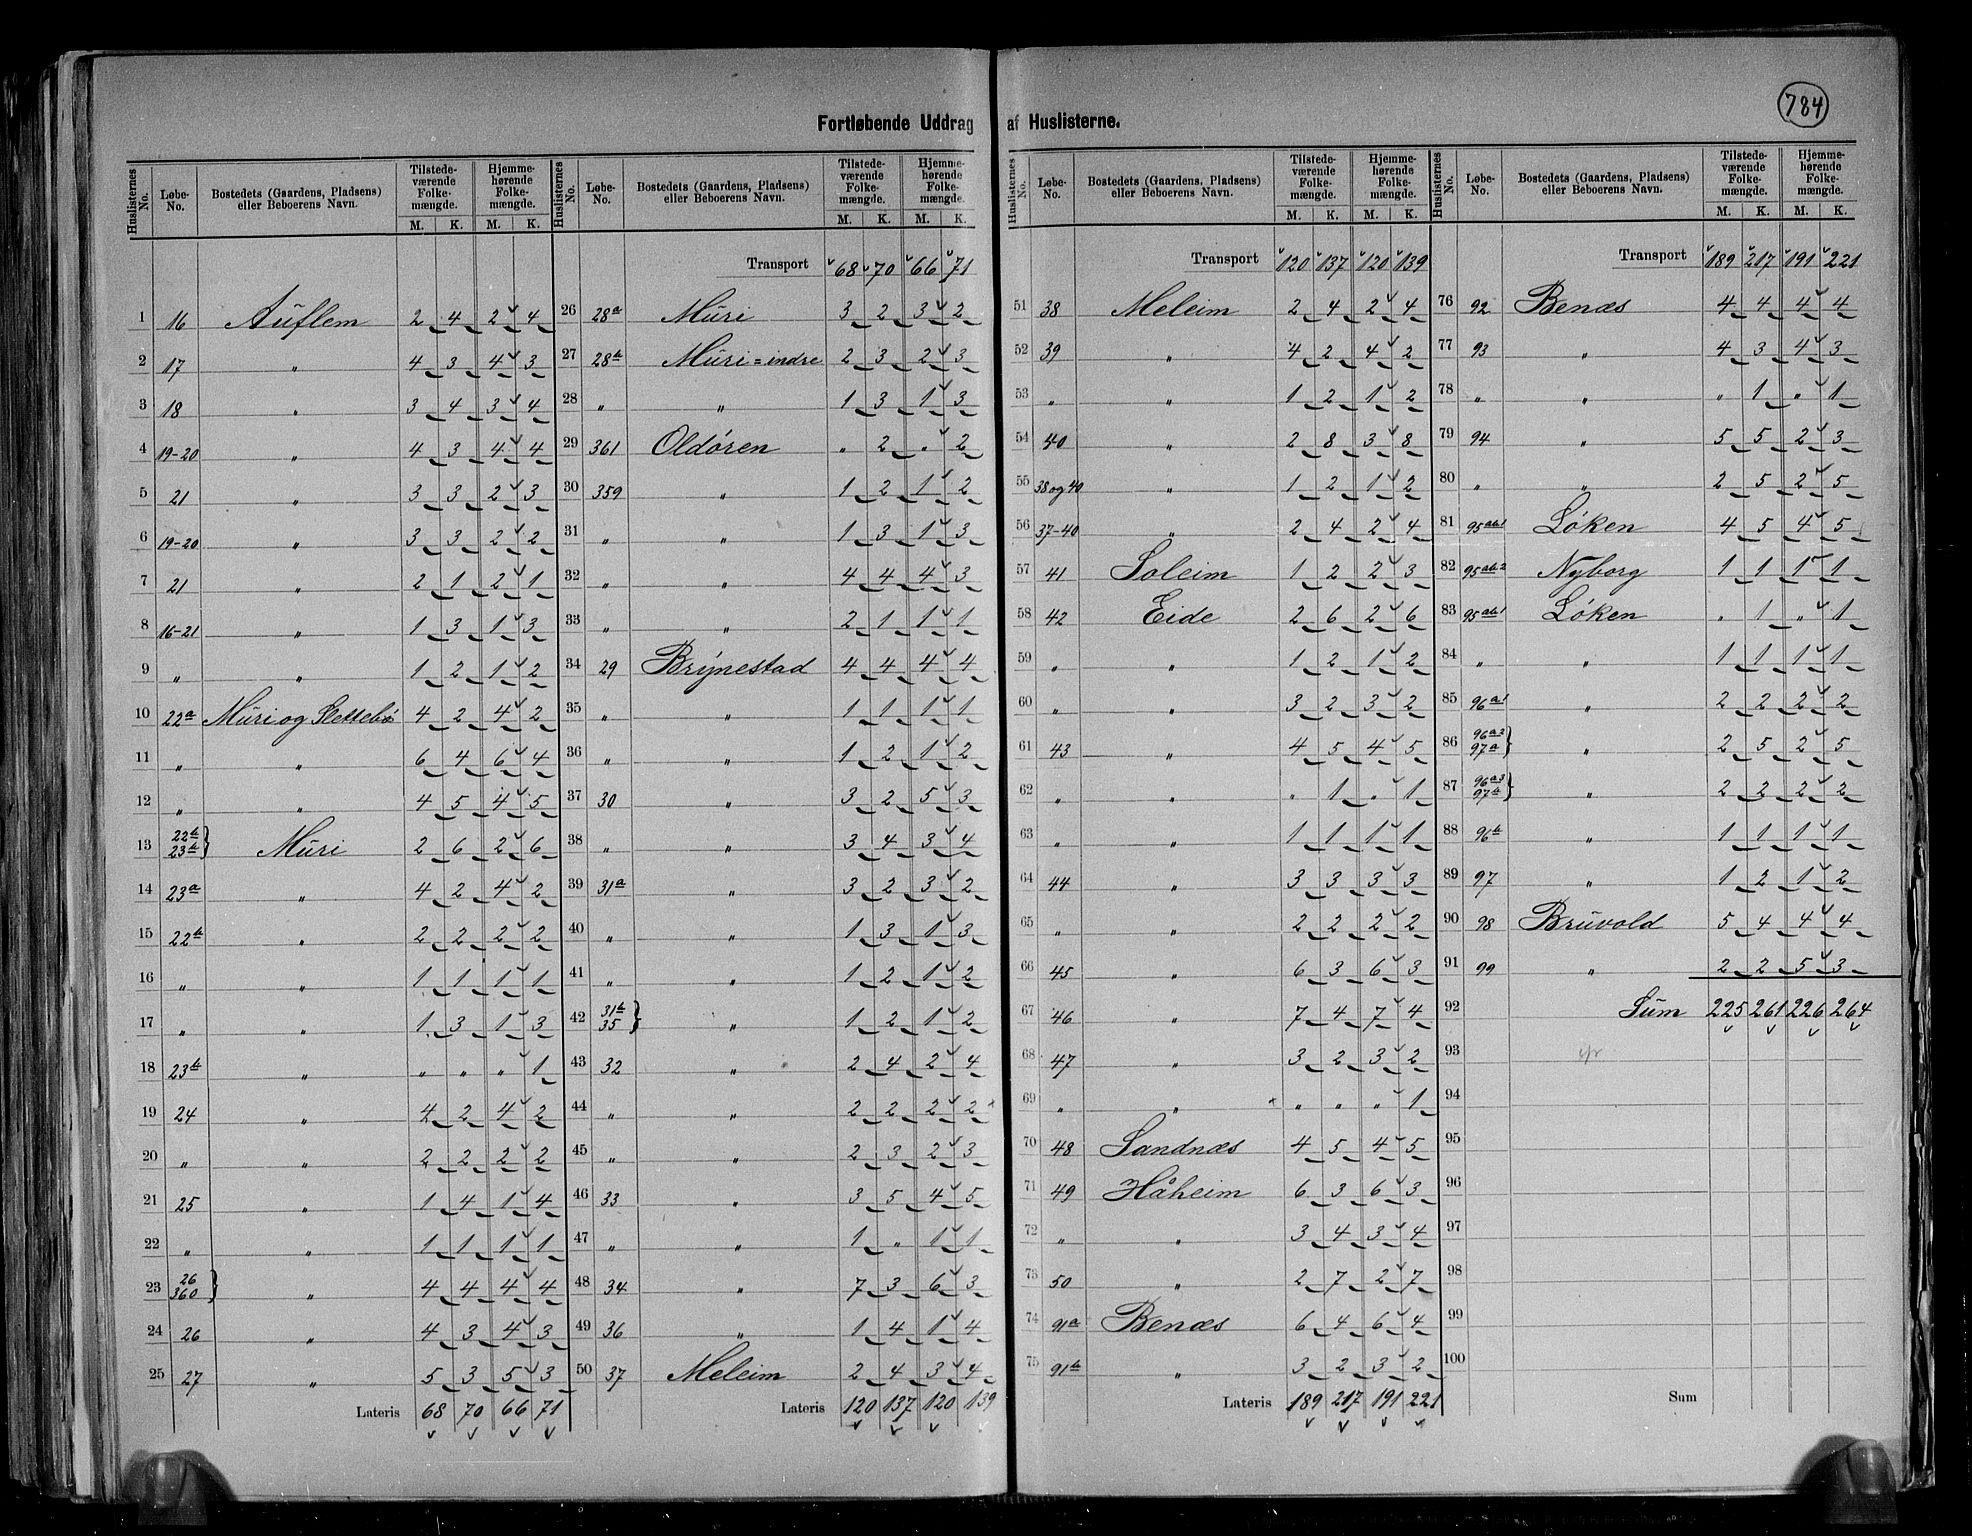 784
Fortløbende Uddrag af Huslisterne.
Huslisternes No. | Løbe-No. | Bostedets (Gaardens, Pladsens) eller Beboerens Navn. | Tilstedeværende Folkemængde. M. K. | Hjemmehørende Folkemængde. M. K.
1 16 Auflem 2 4 2 4
2 17 „ 4 3 4 3
3 18 „ 3 4 3 4
4 19-20 „ 4 3 4 4
5 21 „ 3 3 2 3
6 19-20 „ 3 3 2 2
7 21 „ 2 1 2 1
8 16-21 „ 1 3 1 3
9 „ „ 1 2 1 2
10 22a Muri og Slettebø 4 2 4 2
11 „ „ 6 4 6 4
12 „ „ 4 5 4 5
13 22b 23b } Muri 2 6 2 6
14 23a „ 4 2 4 2
15 22b „ 2 2 2 2
16 „ „ 1 1 1 1
17 „ „ 1 3 1 3
18 23b „ „ „ „ 1
19 24 „ 4 2 4 2
20 „ „ 2 2 2 2
21 25 „ 1 4 1 4
22 „ „ 1 1 1 1
23 26 360 } „ 4 4 4 4
24 26 „ 4 3 4 3
25 27 „ 5 3 5 3
Lateris 68 70 66 71
Huslisternes No. | Løbe-No. | Bostedets (Gaardens, Pladsens) eller Beboerens Navn. | Tilstedeværende Folkemængde. M. K. | Hjemmehørende Folkemængde. M. K.
Transport 68 70 66 71
26 28a Muri 3 2 3 2
27 28b Muri=indre 2 3 2 3
28 „ „ 1 3 1 3
29 361 Oldøren „ 2 „ 2
30 359 „ 1 2 1 2
31 „ „ 1 3 1 3
32 „ „ 4 4 4 3
33 „ „ 2 1 1 1
34 29 Brynestad 4 4 4 4
35 „ „ 1 1 1 1
36 „ „ 1 2 1 2
37 30 „ 3 2 5 3
38 „ „ 3 4 3 4
39 31a „ 3 2 3 2
40 „ „ 1 3 1 3
41 „ „ 1 2 1 2
42 31b 35 } „ 1 2 1 2
43 32 „ 2 4 2 4
44 „ „ 2 2 2 2
45 „ „ 2 3 2 3
46 33 „ 3 5 4 5
47 „ „ 1 „ 1 1
48 34 „ 7 3 6 3
49 36 „ 1 4 1 4
50 37 Meleim 2 4 3 4
Lateris 120 137 120 139
Huslisternes No. | Løbe-No. | Bostedets (Gaardens, Pladsens) eller Beboerens Navn. | Tilstedeværende Folkemængde. M. K. | Hjemmehørende Folkemængde. M. K.
Transport 120 137 120 139
51 38 Meleim 2 4 2 4
52 39 „ 4 2 4 2
53 „ „ 1 2 1 2
54 40 „ 2 8 3 8
55 38 og 40 „ 1 2 1 2
56 37-40 „ 2 4 2 4
57 41 Soleim 1 2 2 3
58 42 Eide 2 6 2 6
59 „ „ 1 2 1 2
60 „ „ 3 2 3 2
61 43 „ 4 5 4 5
62 „ „ „ 1 „ 1
63 „ „ 1 1 1 1
64 44 „ 3 3 3 3
65 „ „ 2 2 2 2
66 45 „ 6 3 6 3
67 46 „ 7 4 7 4
68 47 „ 3 2 3 2
69 „ „ „ „ „ 1
70 48 Sandnæs 4 5 4 5
71 49 Håheim 6 3 6 3
72 „ „ 3 4 3 4
73 50 „ 2 7 2 7
74 91a Benæs 6 4 6 4
75 91b „ 3 2 3 2
Lateris 189 217 191 221
Huslisternes No. | Løbe-No. | Bostedets (Gaardens, Pladsens) eller Beboerens Navn. | Tilstedeværende Folkemængde. M. K. | Hjemmehørende Folkemængde. M. K.
Transport 189 217 191 221
76 92 Benæs 4 4 4 4
77 93 „ 4 3 4 3
78 „ „ „ 1 „ 1
79 94 „ 5 5 2 3
80 „ „ 2 5 2 5
81 95ab1 Løken 4 5 4 5
82 95ab2 Nyborg 1 1 1 1
83 95ab1 Løken „ 1 „ 1
84 „ „ 1 1 1 1
85 96a1 „ 2 2 2 2
86 96a2 97a } „ 2 5 2 5
87 96a3 97b } „ 2 2 2 2
88 96b „ 1 1 1 1
89 97 „ 1 2 1 2
90 98 Bruvold 5 4 4 4
91 99 „ 2 2 5 3
92 Sum 225 261 226 264
93
94
95
96
97
98
99
100
Sum